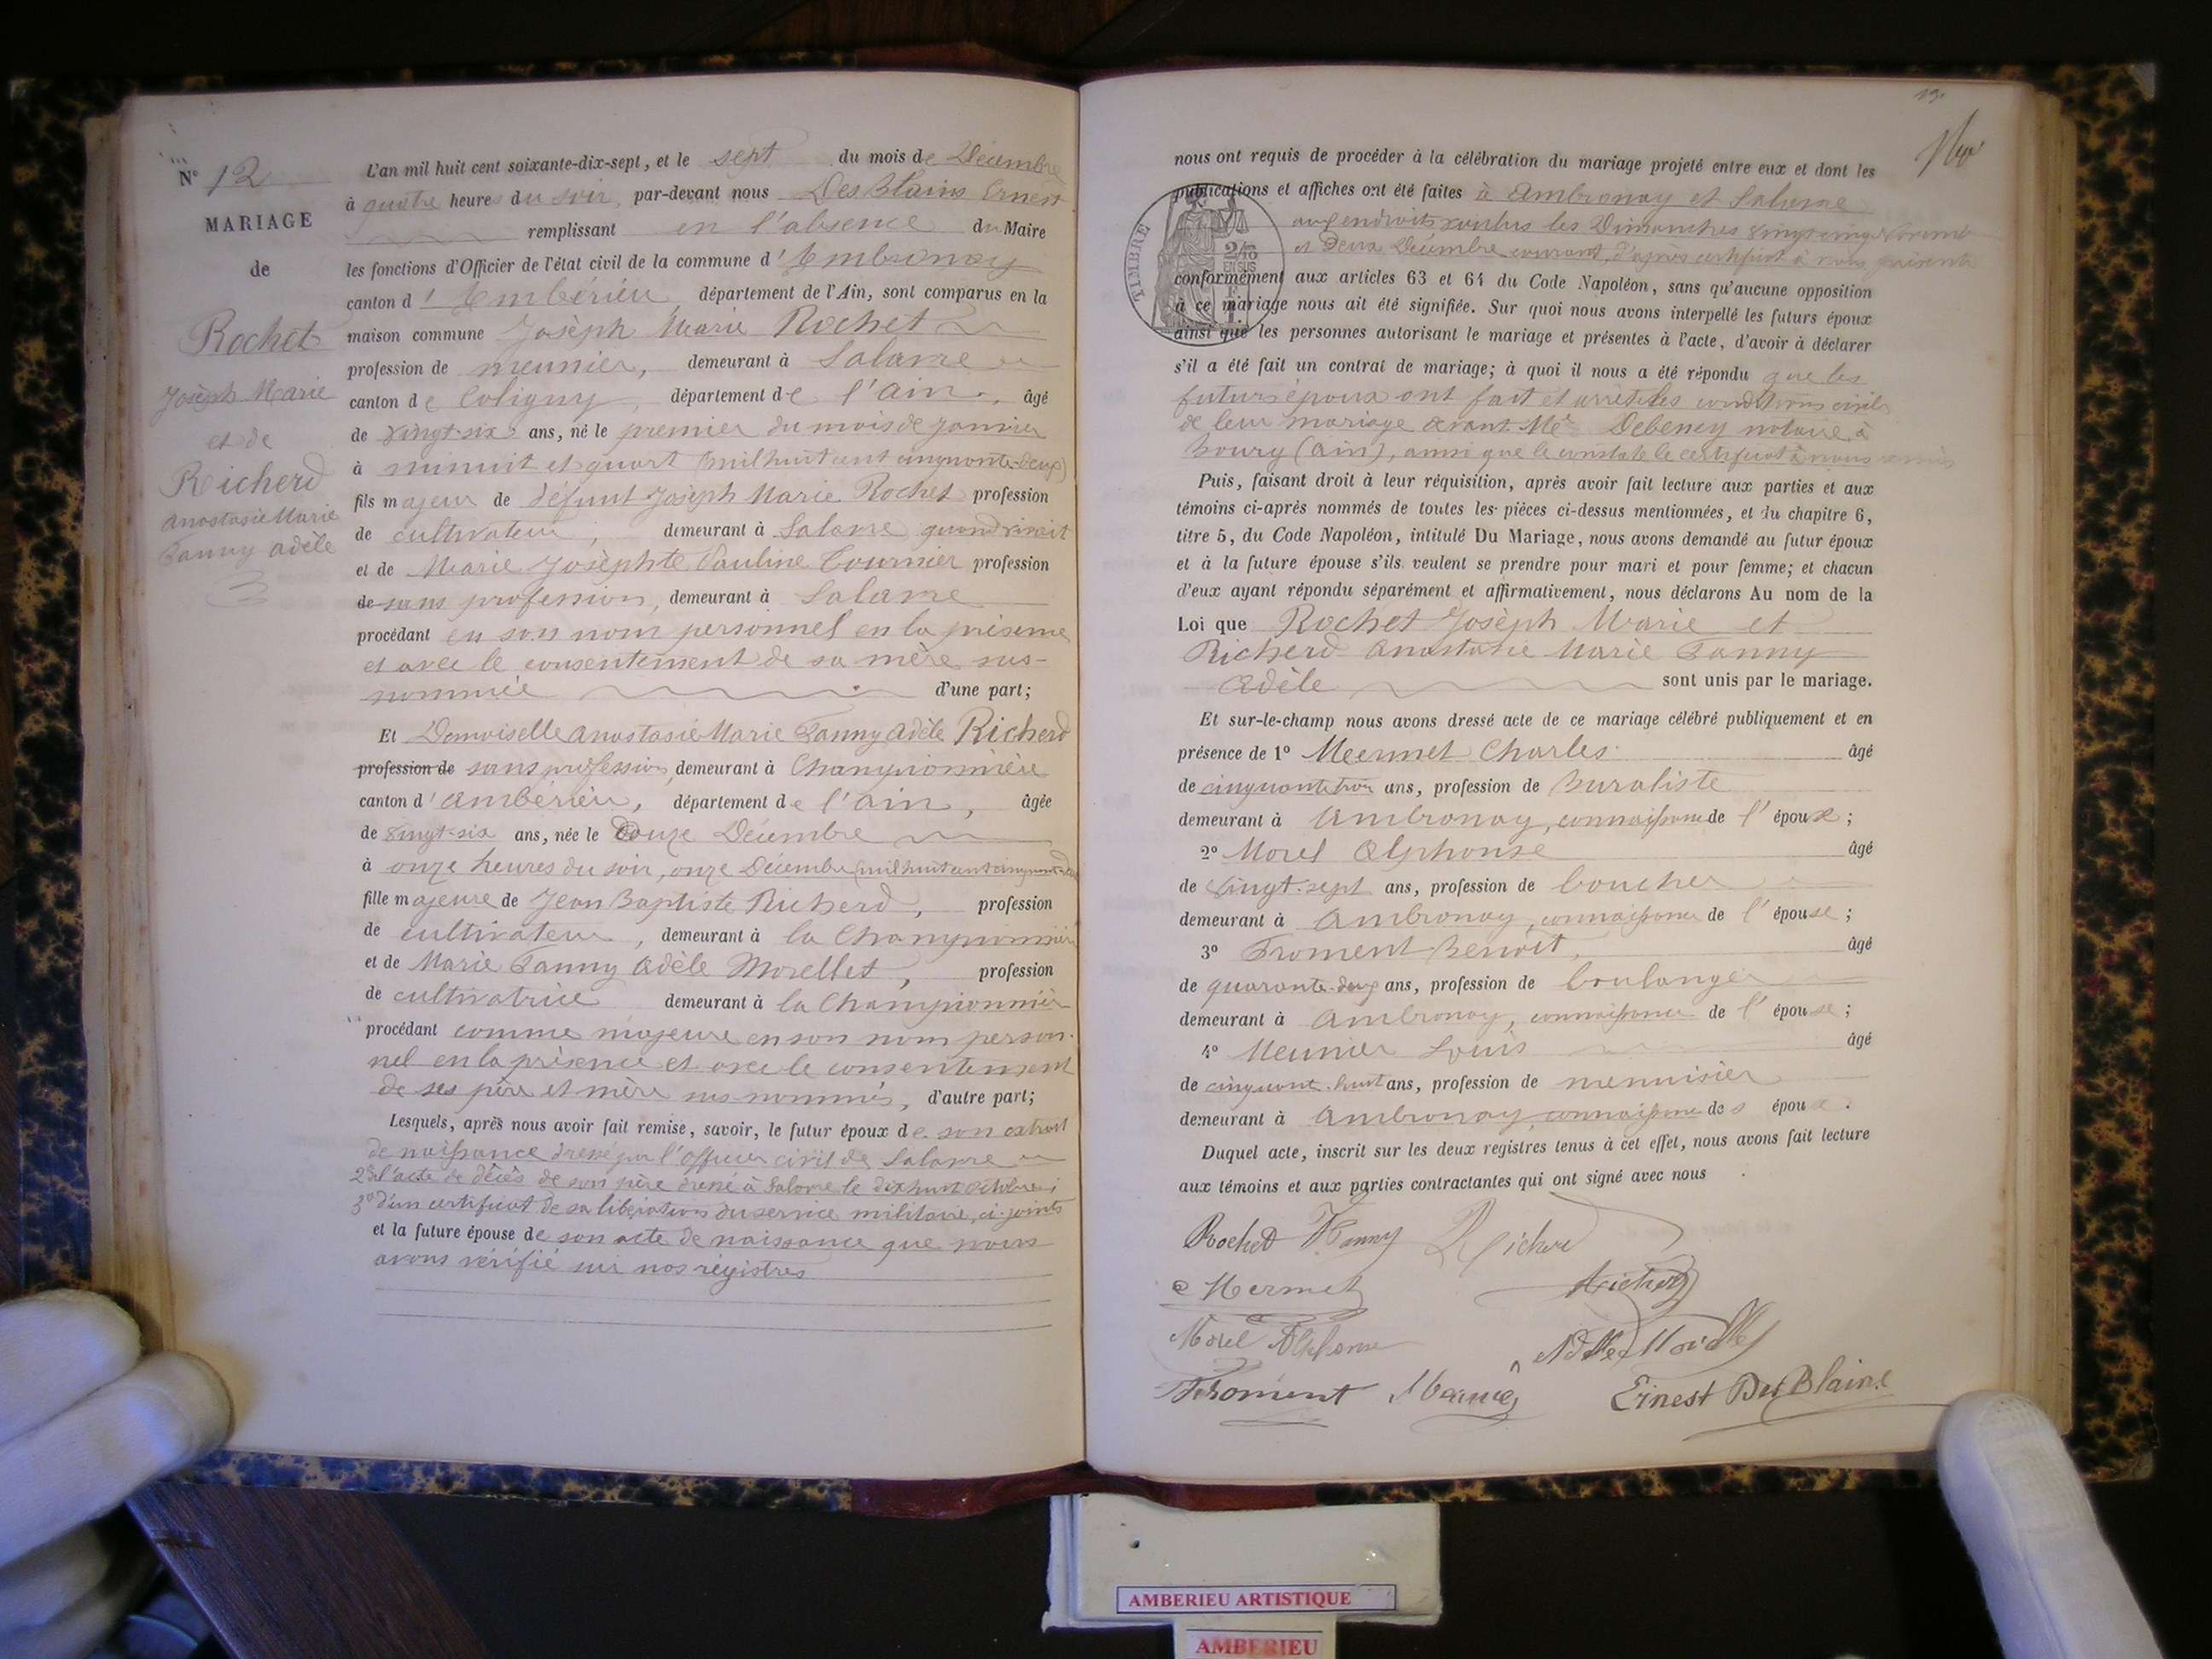 N° 12
MARIAGE
de
Rochet
Joseph Marie
et de
Richerd
Anastasie Marie
Fanny Adèle
L'an mil huit cent soixante-dix-sept, et le sept du mois de Décembre
à quatre heures du soir, par-devant nous Des Blains Ernest
remplissant en l'absence du Maire
les fonctions d'Officier de l'état civil de la commune d'Ambronay
canton d'Ambérieu département de l'Ain, sont comparus en la
maison commune Josèph Marie Rochet
profession de meunier, demeurant à Salavre
canton de Coligny, département de l'Ain, âgé
de vingt-six ans, né le premier du mois de janvier
à minuit et quart (mil huit cent cinquante-deux)
fils majeur de défunt Josèph Marie Rochet profession
de cultivateur, demeurant à Salavre quand vivait
et de Marie Josèphte Pauline Cournier profession
de sans profession, demeurant à Salavre
procédant en son nom personnel en la présence
et avec le consentement de sa mère sus-
nommée d'une part;
Et Demoiselle Anastasie Marie Fanny Adèle Richerd
profession de sans profession, demeurant à Championnière
canton d'Ambérieu, département de l'Ain, âgée
de vingt-six ans, née le douze Décembre
à onze heures du soir, onze Décembre (mil huit cent cinquante
fille majeure de Jean Baptiste Richerd, profession
de cultivateur, demeurant à la Championnière
et de Marie Fanny Adèle Morellet, profession
de cultivatrice demeurant à la Championnière
procédant comme majeure en son nom person-
nel en la présence et avec le consentement
de ses père et mère sus nommés, d'autre part;
Lesquels, après nous avoir fait remise, savoir, le futur époux de son extrait
de naissance dressé par l'officier civil de Salavre
2° de l'acte de décès de son père dressé à Salavre le dix huit octobre;
3° d'un certificat de sa libération du service militaire, ci-joints
et la future épouse de son acte de naissance que nous
avons vérifié sur nos régistres
13
nous ont requis de procéder à la célébration du mariage projeté entre eux et dont les
publications et affiches ont été faites à Ambronay et Salavre
aux endroits voulus les Dimanches vingt-cinq Novembre
et deux Décembre courant, d'après certificat à nous présenté
TIMBRE
2/10
EN SUS
conformément aux articles 63 et 64 du Code Napoléon, sans qu'aucune opposition
à ce mariage nous ait été signifiée. Sur quoi nous avons interpellé les futurs époux
ainsi que les personnes autorisant le mariage et présentes à l'acte, d'avoir à déclarer
s'il a été fait un contrat de mariage; à quoi il nous a été répondu que les
futurs époux ont fait et arrêté les conditions civiles
de leur mariage devant Me Debeney notaire à
Bourg (Ain), ainsi que le constate le certificat à nous remis
Puis, faisant droit à leur réquisition, après avoir fait lecture aux parties et aux
témoins ci-après nommés de toutes les pièces ci-dessus mentionnées, et du chapitre 6,
titre 5, du Code Napoléon, intitulé Du Mariage, nous avons demandé au futur époux
et à la future épouse s'ils veulent se prendre pour mari et pour femme; et chacun
d'eux ayant répondu séparément et affirmativement, nous déclarons Au nom de la
Loi que Rochet Josèph Marie et
Richerd Anastasie Marie Fanny
Adèle sont unis par le mariage.
Et sur-le-champ nous avons dressé acte de ce mariage célébré publiquement et en
présence de 1° Mermet Charles âgé
de cinquante trois ans, profession de buraliste
demeurant à Ambronay, connaissance de l'époux;
2° Morel Alphonse âgé
de vingt-sept ans, profession de boucher
demeurant à Ambronay, connaissance de l'épouse;
3° Froment Benoit, âgé
de quarante-deux ans, profession de boulanger
demeurant à Ambronay, connaissance de l'épouse;
4° Meunier Louis âgé
de cinquant-huit ans, profession de menuisier
demeurant à Ambronay, connaissance des époux.
Duquel acte, inscrit sur les deux registres tenus à cet effet, nous avons fait lecture
aux témoins et aux parties contractantes qui ont signé avec nous
Rochet Fanny Richerd
C Mermet Richerd
Morel Alphonse
Froment Meunier Ernest Des Blains
AMBERIEU ARTISTIQUE
AMBERIEU